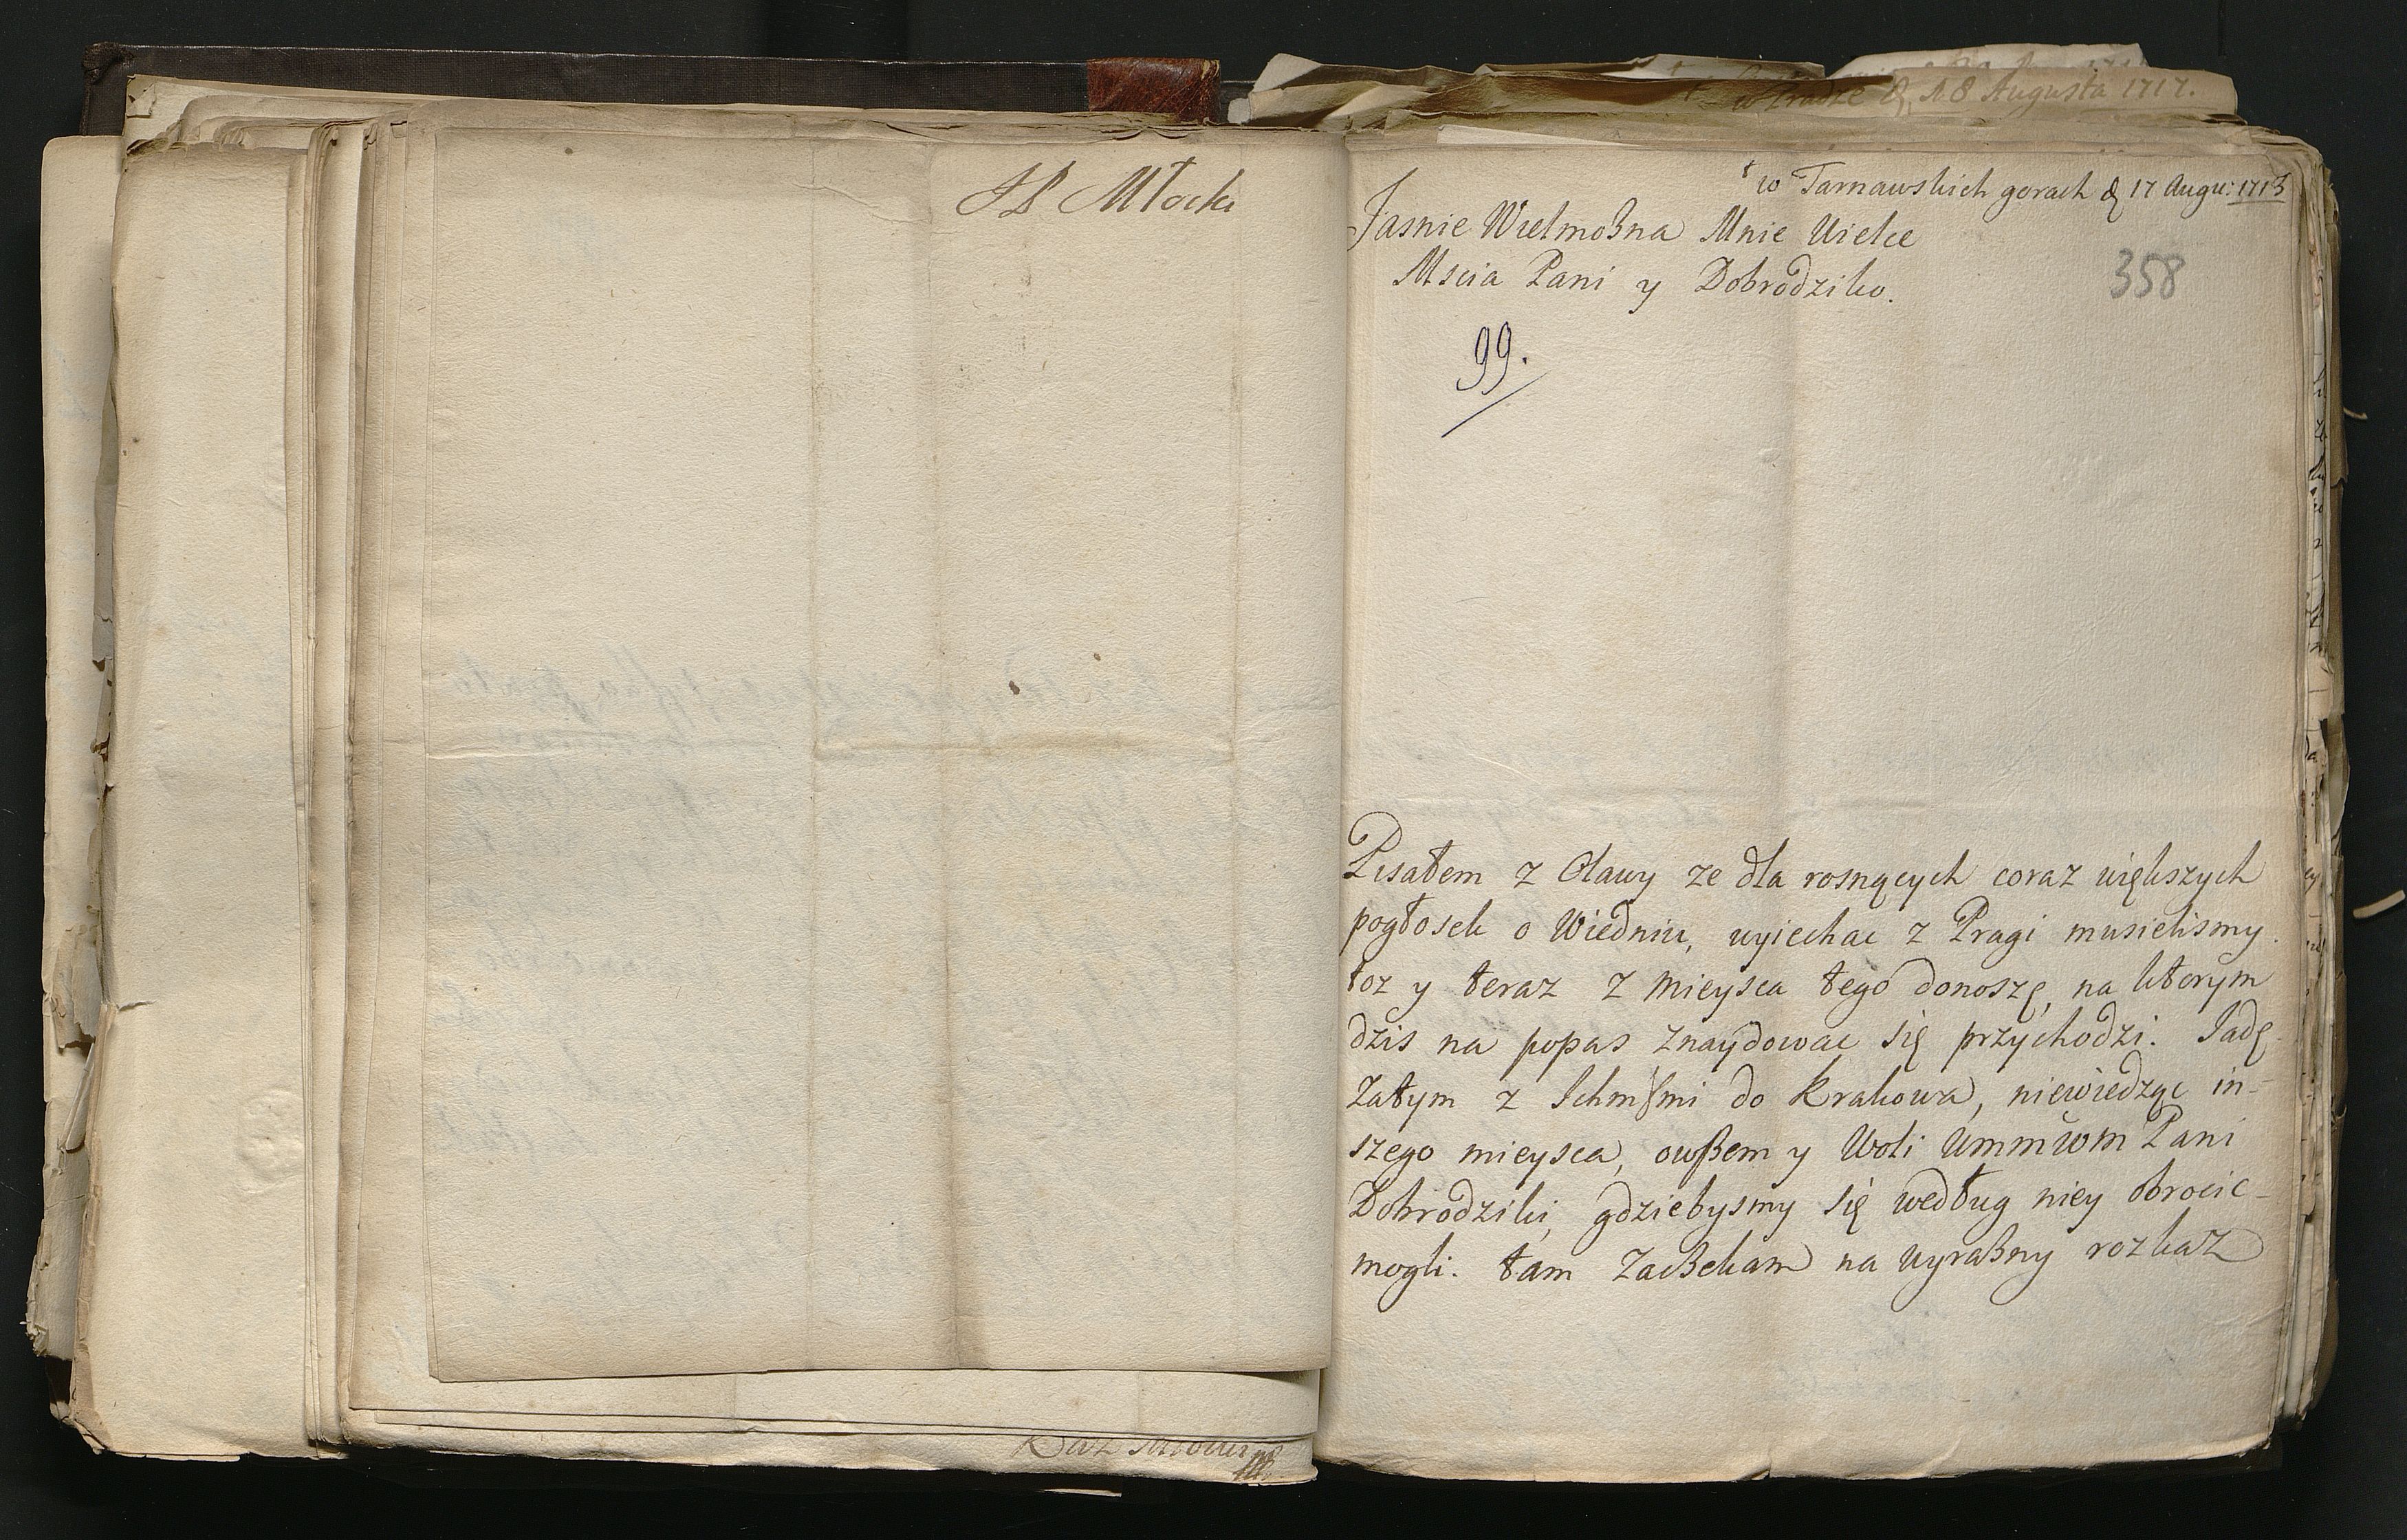 JB Młocki
w Pradze d. 18 Augusta 1717.
w Tarnawskich gorach d 17 Augu: 1713
Jasnie Wielmożna Mnie Wielce
Mscia Pani y Dobrodziko.
358
99.
Pisałem z Oławy ze dla rosnących coraz większych
pogłosek o Wiedniu, wyiechac z Pragi musielismy.
toz y teraz z mieysca tego donoszę, na ktorym
dzis na popas znaydowac się przychodzi. Jadę
zatym z Ichmſmi do Krakowa, niewiedząc in-
szego mieysca, owßem y Woli Ummwm Pani
Dobrodziki, gdziebysmy się według niey obrocic
mogli. tam zaczekam na wyrażny rozkaz